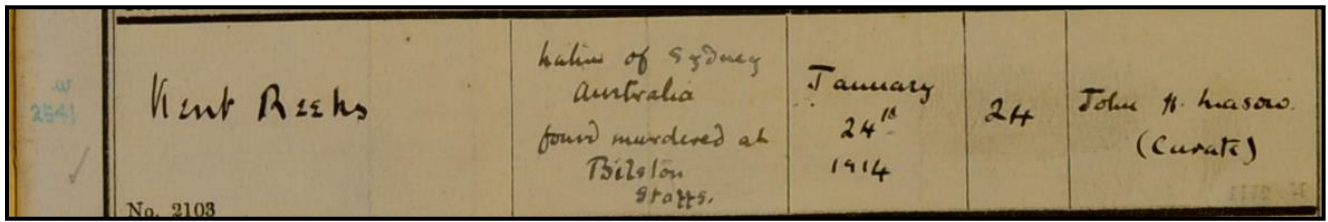 W
2541
Kent Reeks
Native of Sydney
Australia
found murdered at
Bilston
Staffs.
January
24th
1914
24
John H. Mason.
(Curate)
No. 2103